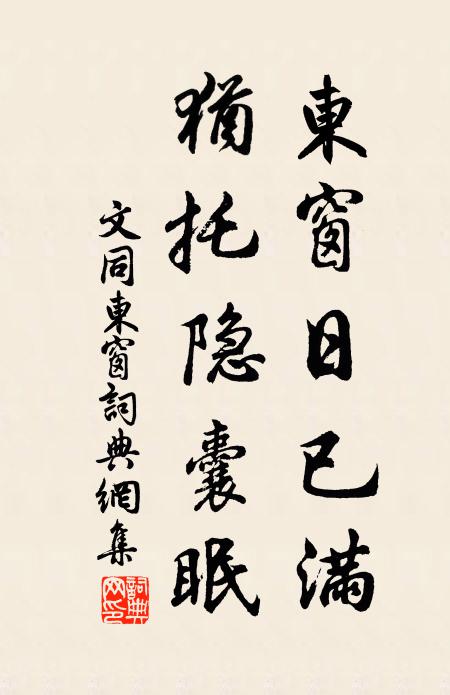 東窗日已滿
猶托隐囊眠
文同東窗詞典網集
詞典網印